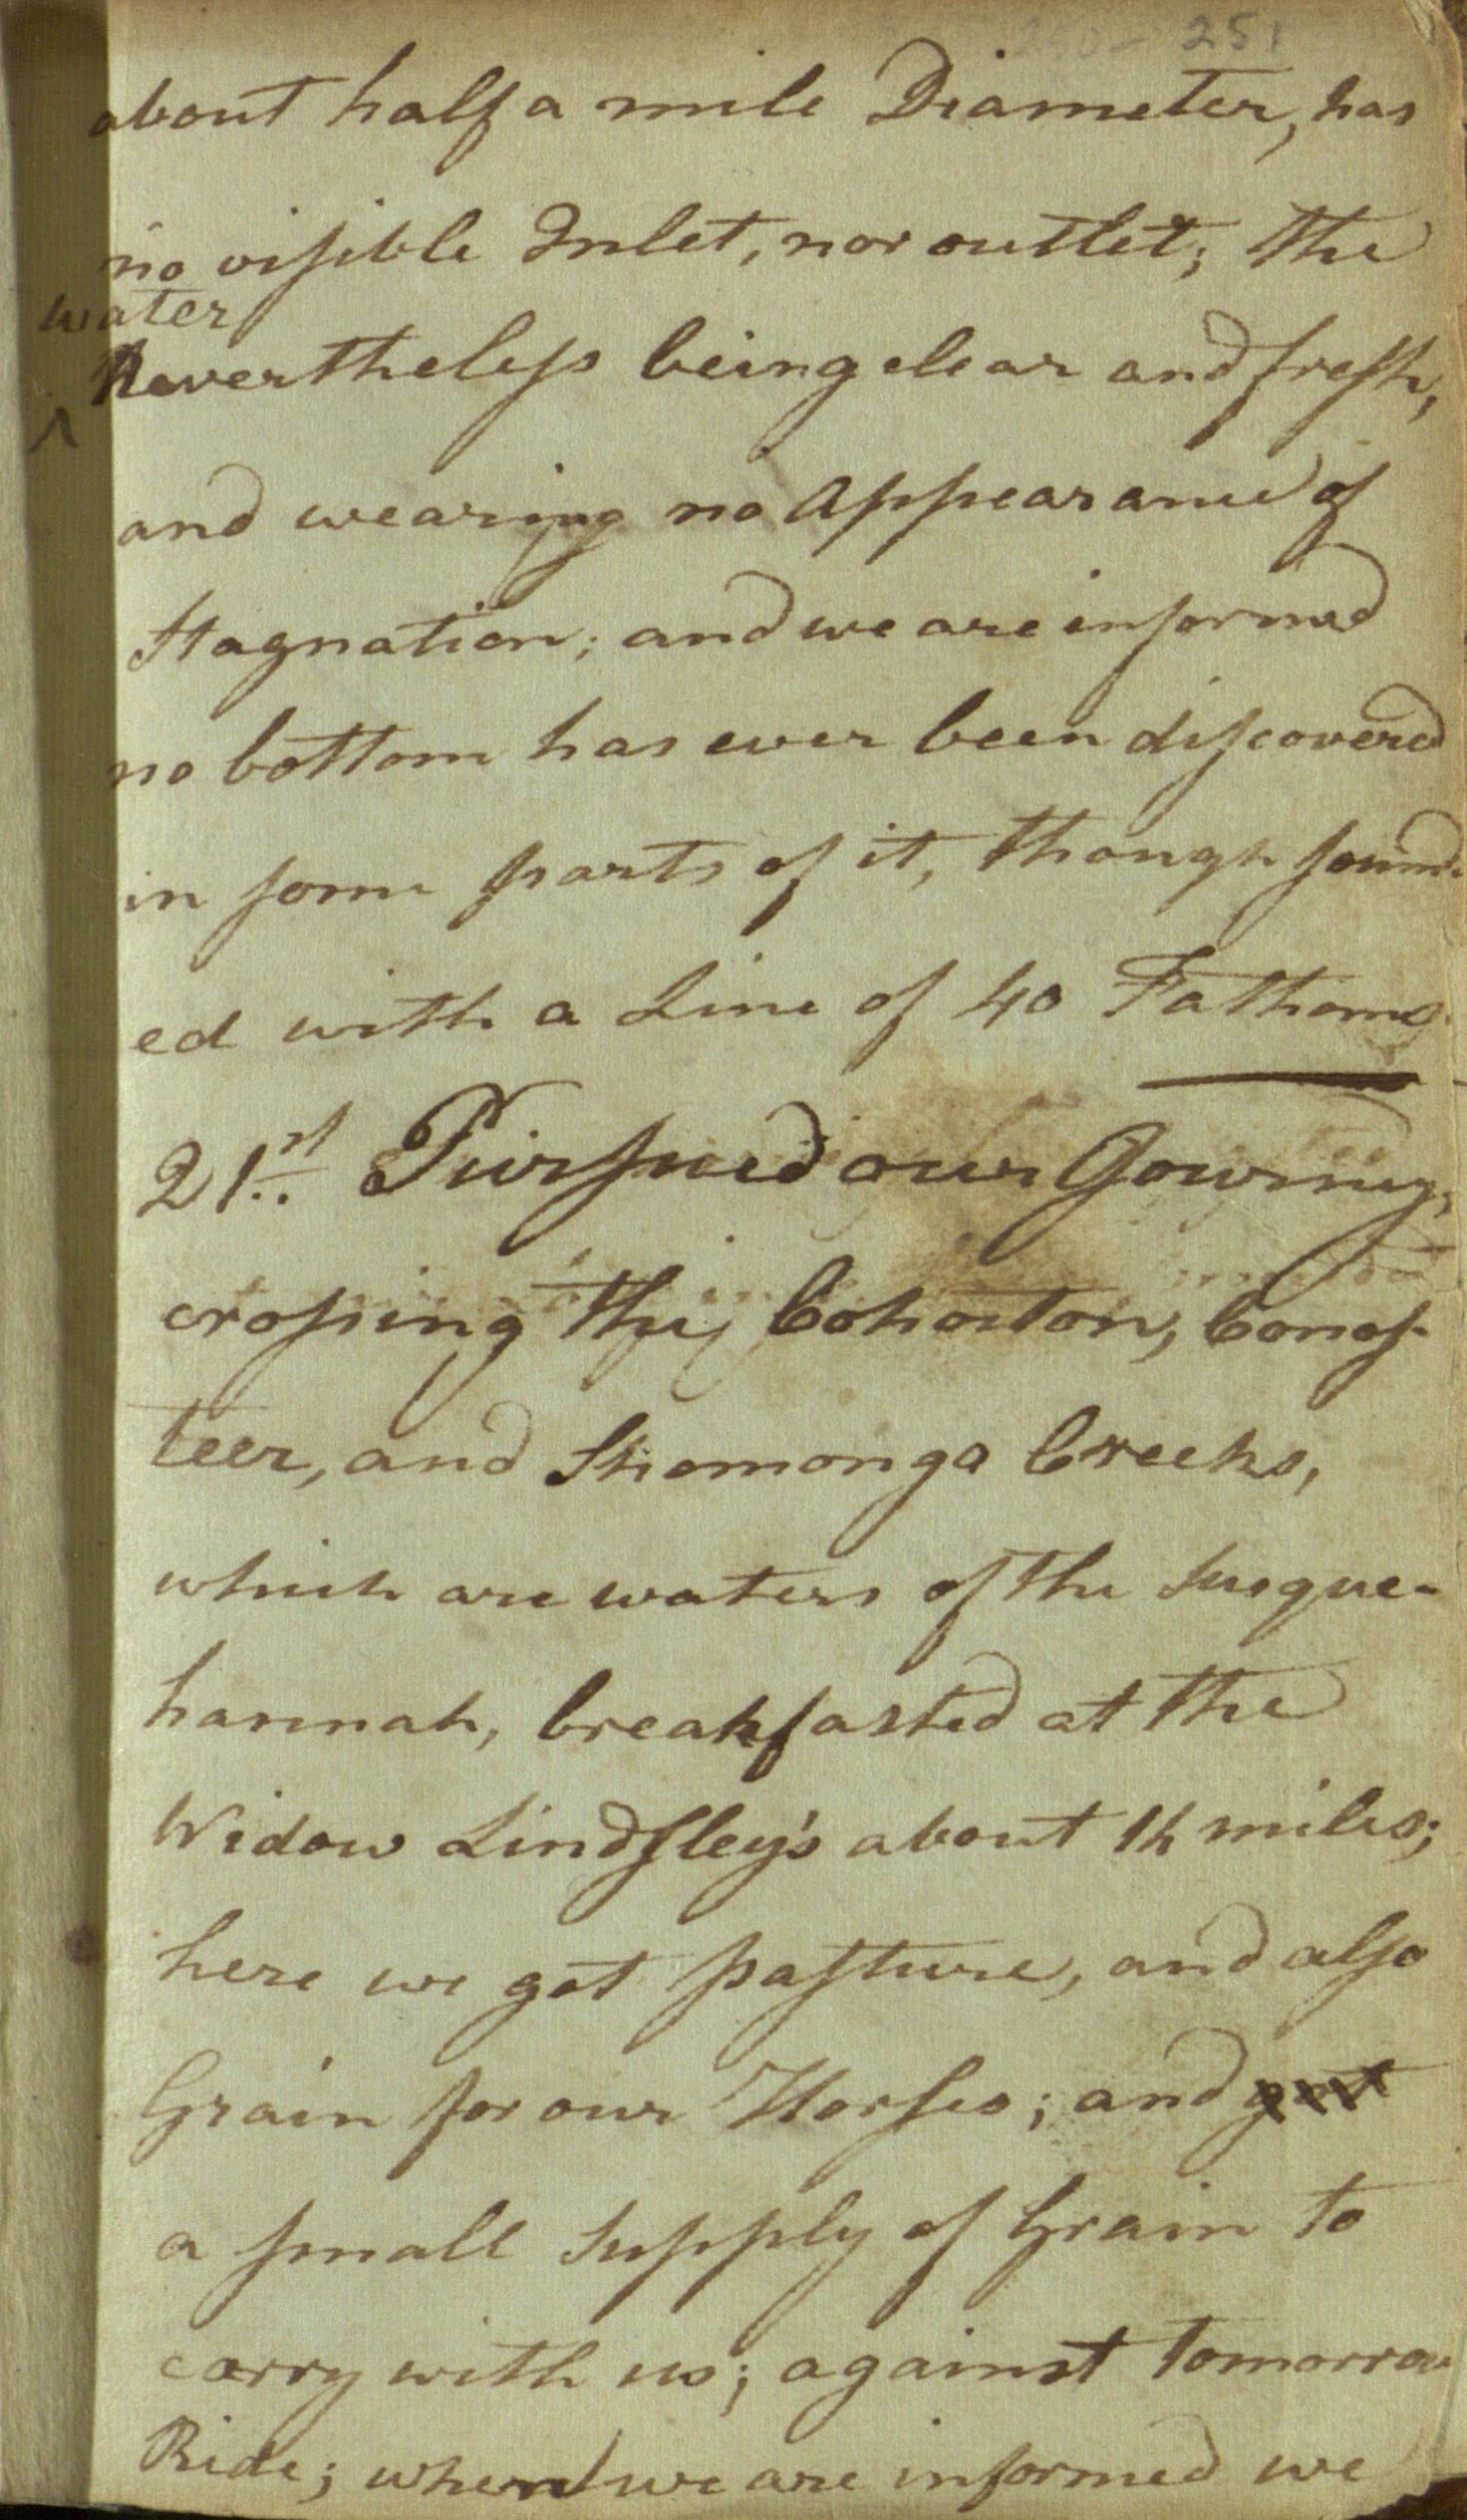 251
about half a mile Diameter, has
no visible Inlet, nor outlet; the
water
Nevertheless being clear and fresh,
^
and wearing no Appearance of
Stagnation; and we are informed
no bottom has ever been discovered
in some parts of it, though sound-
ed with a Line of 40 Fathoms.
21st. Pursued our Journey,
crossing the Cohocton, Cones-
teer, and Shomonga Creeks,
which are waters of the Susque-
hannah, breakfasted at the
Widow Lindsley's about 14 miles;
here we got pasture, and also
Grain for our Horses; and got
a small Supply of Grain to
carry with us; against tomorrow
Ride; when we are informed we